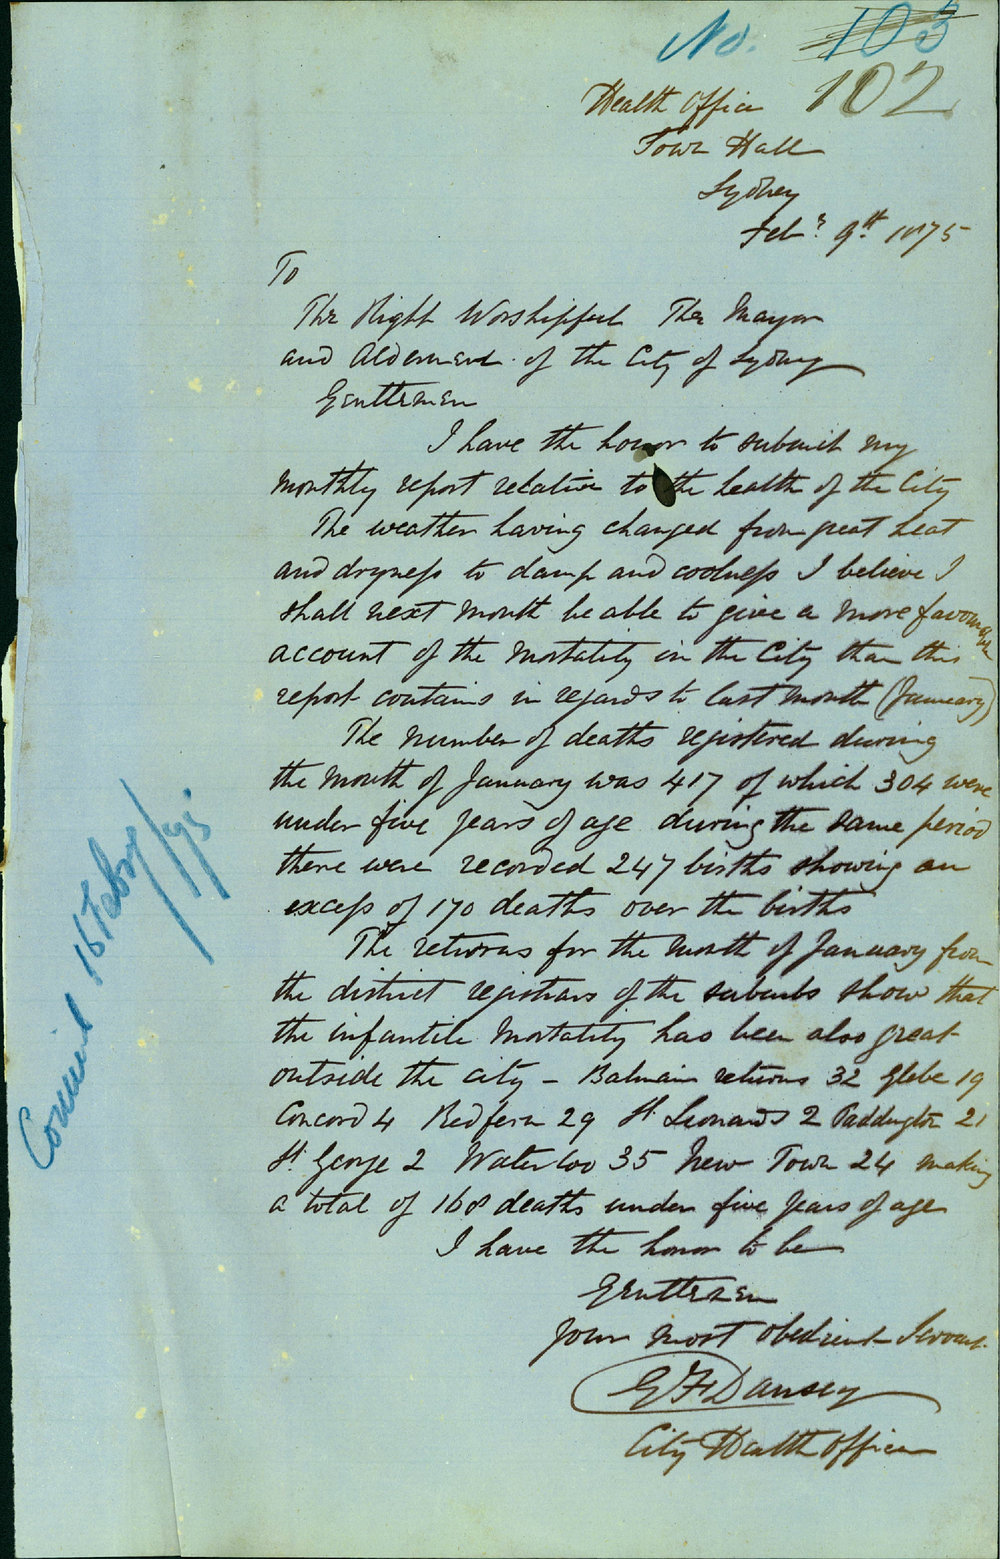 No. 103
102
Health Office
Town Hall
Sydney
Feby 9th 1875
To
The Right Worshipful The Mayor
and Aldermen of the City of Sydney
Gentlemen
I have the honor to submit my
monthly report relative to the health of the City
The weather having changed from great heat
and dryness to damp and coolness I believe I
shall next month be able to give a more favourable
account of the mortality in the City than this
report contains in regards to last month (January)
The number of deaths registered during
the month of January was 417 of which 304 were
under five years of age during the same period
there were recorded 247 births showing an
excess of 170 deaths over the births
The returns for the month of January from
the district registrars of the suburbs show that
the infantile mortality has been also great
outside the city - Balmain returns 32 Glebe 19
Concord 4 Redfern 29 St. Leonards 2 Paddington 21
St. George 2 Waterloo 35 New Town 24 making
a total of 168 deaths under five years of age
I have the honor to be
Gentlemen
Your most obedient Servant
G F Dansey
City Health Officer
Council 16 Febry/75